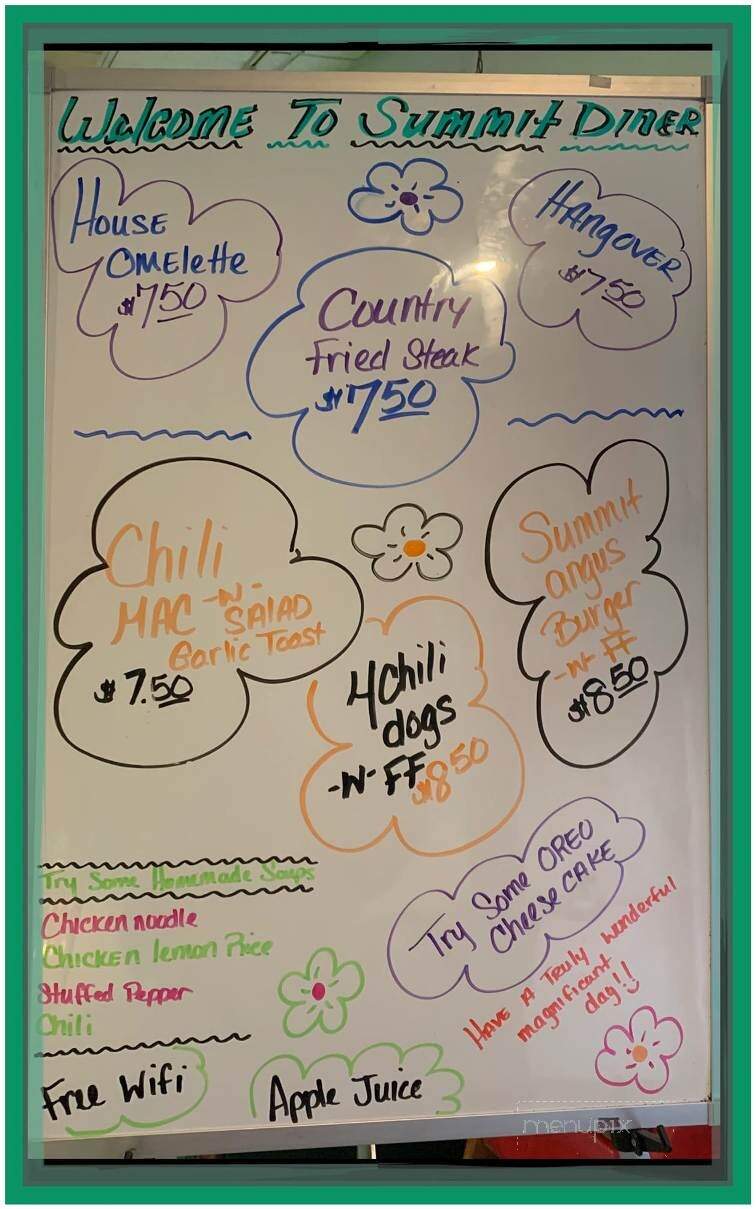 WELCOME TO SUMMIT DINER
HOUSE
OMElette
$7 50
HANgOVER
$7 50
Country
Fried Steak
$7 50
Chili
MAC -N- SAlAD
Garlic Toast
$7.50
Summit
angus
Burger
-W- FF
$8 50
4 Chili
dogs
-W- FF
$8 50
Try Some OREO
Cheese CAKE
Try Some Homemade Soups
Chicken noodle
Chicken lemon Rice
Stuffed Pepper
Chili
HAVE A Truly wonderful
magnificant
day!!
Free Wifi
Apple Juice
menupix